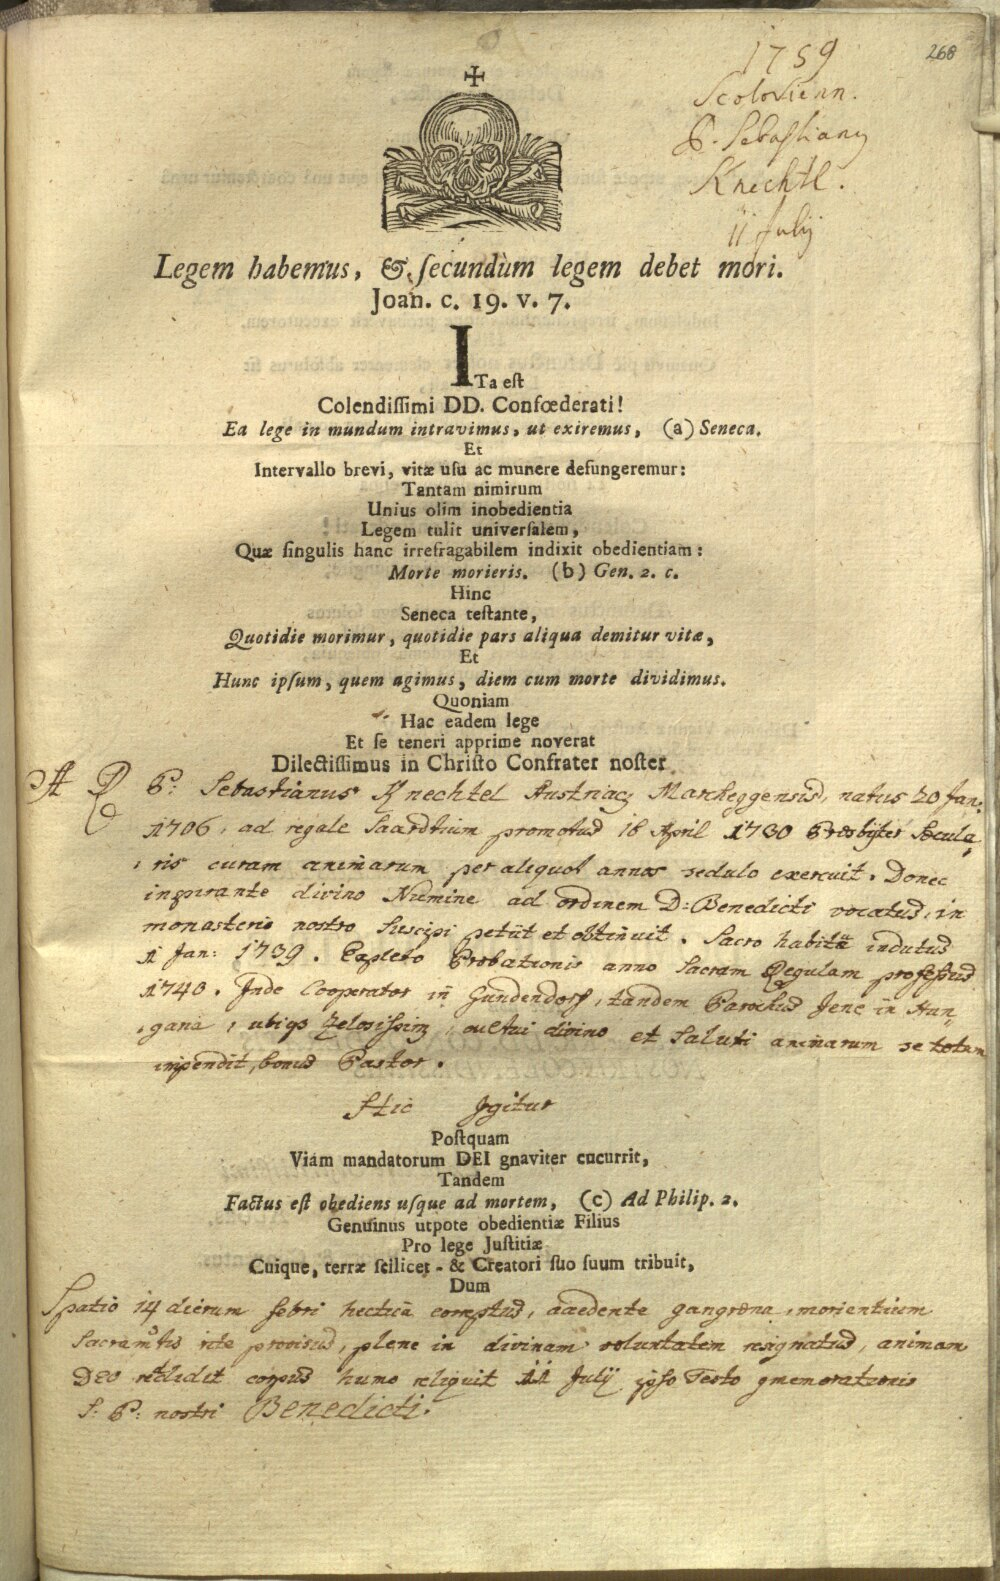 268
1759
Scotovienn.
P. Sebastiany
Knechtl.
11 July
Legem habemus, & ſecundùm legem debet mori.
Joan. c. 19. v. 7.
ITa eſt
Colendiſſimi DD. Confœderati!
Ea lege in mundum intravimus, ut exiremus, (a) Seneca.
Et
Intervallo brevi, vitæ uſu ac munere defungeremur:
Tantam nimirum
Unius olim inobedientia
Legem tulit univerſalem,
Quæ ſingulis hanc irrefragabilem indixit obedientiam:
Morte morieris. (b) Gen. 2. c.
Hinc
Seneca teſtante,
Quotidie morimur, quotidie pars aliqua demitur vitæ,
Et
Hunc ipſum, quem agimus, diem cum morte dividimus.
Quoniam
Hac eadem lege
Et ſe teneri apprime noverat
Dilectiſſimus in Chriſto Confrater noſter
A R P: Sebastianus Knechtel Austriacy Marcheggensis, natus 20 Jan:
1706, ad regale Saardtium promotus 18 April 1730 Presbyter Sæcula
ris curam animarum per aliquot annos sedulo exercuit. Donec
inspirante divino Numine ad ordinem D: Benedicti vocatus, in
monasterio nostro suscipi petiit et obtinuit. Sacro habitu indutus
1 Jan: 1739. Expleto Probationis anno sacram Regulam professus
1740. Inde Cooperator in Gundendorf, tandem Parochus Jene in Hun
garia, ubiqz zelosissimy, cultui divino et saluti animarum se totum
impendit, bonus Pastor.
Hic Igitur
Poſtquam
Viam mandatorum DEI gnaviter cucurrit,
Tandem
Factus eſt obediens uſque ad mortem, (c) Ad Philip. 2.
Genuinus utpote obedientiæ Filius
Pro lege Juſtitiæ
Cuique, terræ ſcilicet - & Creatori ſuo ſuum tribuit,
Dum
Spatio 14 dierum febri hectica correptus, accedente gangrena, morientium
Sacramtis rite provisus, plene in divinam voluntatem resignatus, animam
DEO reddidit corpus humo reliquit 11 July ipso Festo gmemorationis
S: P: nostri Benedicti.